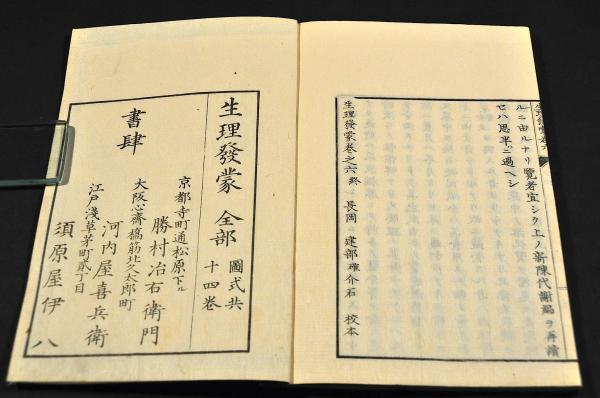 ルニ由ルナリ覽者宜シク上ノ新陳代謝編ヲ再讀
セハ思半ニ過ヘシ
生理發蒙卷之六終　長岡　建部確介石　校本
生理發蒙　全部　圖式共十四卷
書肆
京都寺町通松原下ル
勝村冶右衛門
大阪心齋橋筋北久太郎町
河内屋喜兵衛
江戸淺草茅町貳丁目
須原屋伊八